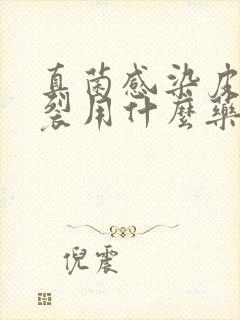 真菌感染皮
裂用什麼藥
倪震